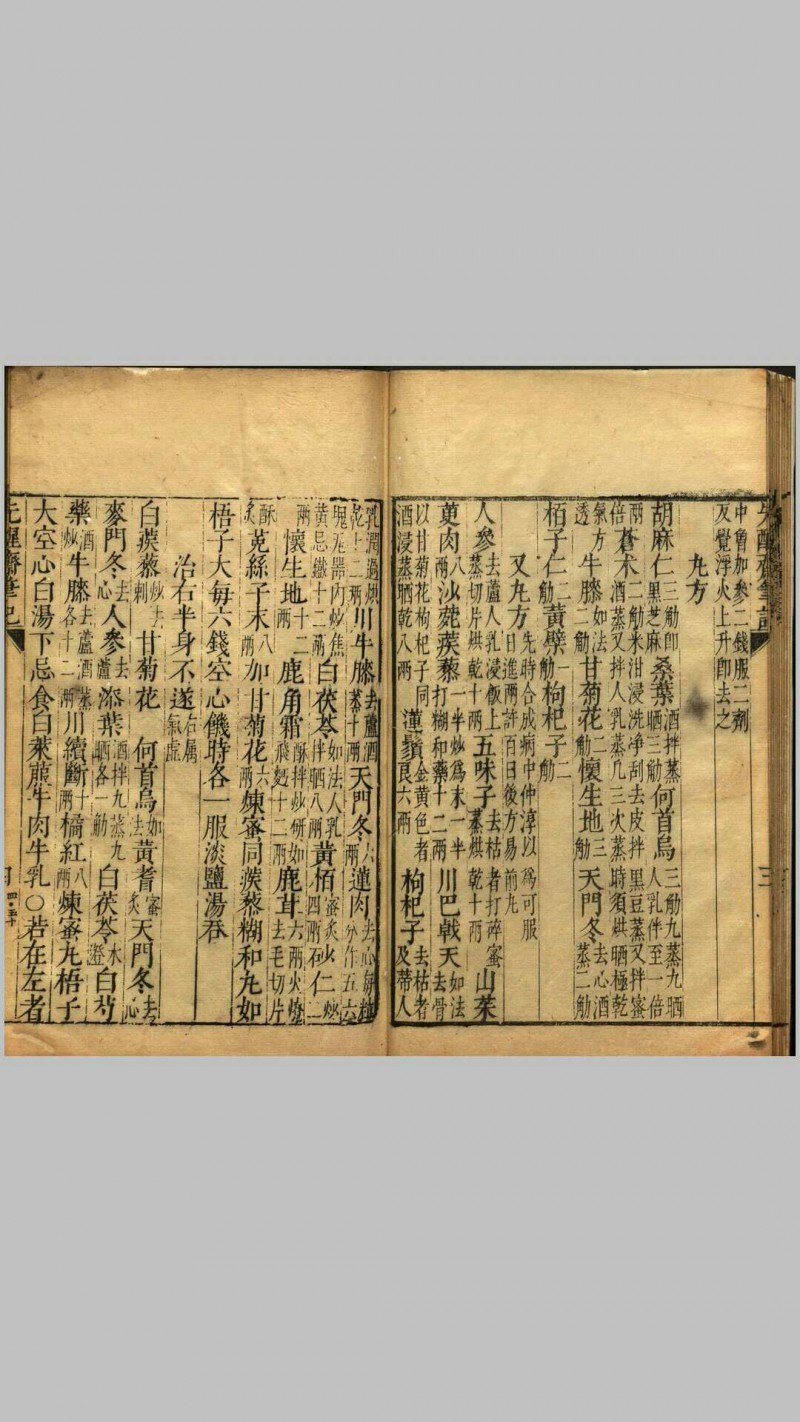 先醒齋筆記 三
中曾加參二錢服二劑反覺浮火上升卽去之
丸方
胡麻仁三觔卽黑芝麻桑葉酒拌蒸晒三觔何首烏三觔九蒸九晒人乳伴至一倍
兩倍蒼术二觔米泔浸洗淨刮去皮拌黑豆蒸又拌蜜酒蒸又拌人乳蒸凡三次蒸時須烘晒極乾
氣方透牛膝如法二觔甘菊花二觔懷生地三觔天門冬去心酒蒸二觔
栢子仁二觔黃檗一觔枸杞子二觔
又丸方先時合成病中仲淳以爲可服日進兩許百日後方易前丸
人參去蘆人乳浸飯上蒸切片烘乾十兩五味子去枯者打碎蜜蒸烘乾十兩山茱
萸肉八兩沙菀蒺藜一半炒爲末一半打糊和藥十二兩川巴戟天如法去骨
以甘菊花枸杞子同酒浸蒸晒乾八兩蓮鬚金黃色者良六兩枸杞子去枯者及蒂人
乳潤過烘乾十二兩川牛膝去蘆酒蒸十兩天門冬六兩蓮肉去心每粒分作五六
塊瓦器內炒焦黃忌鐵十二兩白茯苓如法人乳拌晒八兩黃栢蜜炙四兩砂仁炒二
兩懷生地十二兩鹿角霜酥拌炒研如飛麪十二兩鹿茸六兩火燎去毛切片
酥炙菟絲子末八兩加甘菊花六兩煉蜜同蒺藜糊和丸如
梧子大每六錢空心饑時各一服淡鹽湯吞
治右半身不遂右属氣虛
白蒺藜炒去刺甘菊花 何首烏如法黃耆蜜炙天門冬去心
麥門冬去心人參去蘆桑葉酒拌九蒸九晒各一觔白茯苓水澄白芍
藥酒炒牛膝去蘆酒蒸各十二兩川續斷十兩橘紅八兩煉蜜丸梧子
大空心白湯下忌食白萊菔牛肉牛乳○若在左者
先醒齋筆記